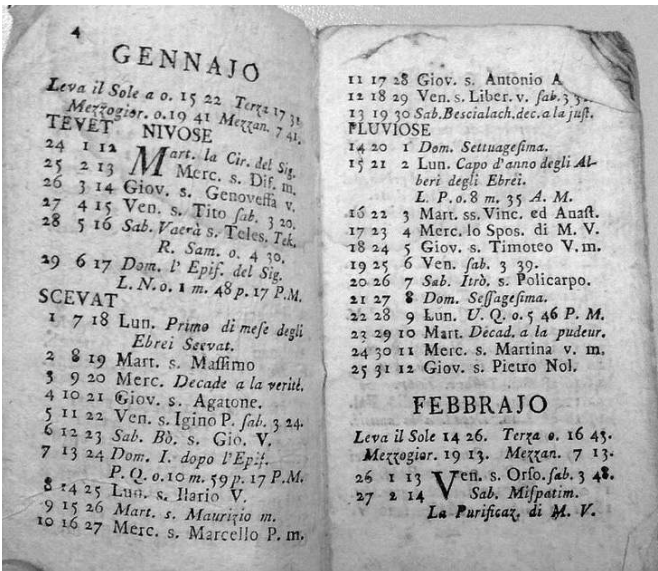 4
GENNAJO
Leva il Sole a o. 15 22 Terza 17 31
Mezzogior. o. 19 41 Mezzan. 7 41.
TEVET NIVOSE
24 1 12 Mart. la Cir. del Sig.
25 2 13 Merc. s. Dif. m.
26 3 14 Giov. s. Genoveffa v.
27 4 15 Ven. s. Tito ſab. 3 20.
28 5 16 Sab. Vaerà s. Teles. Tek.
R. Sam. o. 4 30.
29 6 17 Dom. l' Epif. del Sig.
L. N. o. 1 m. 48 p. 17 P.M.
SCEVAT
1 7 18 Lun. Primo di meſe degli
Ebrei Scevat.
2 8 19 Mart. s. Maſſimo
3 9 20 Merc. Decade a la verité.
4 10 21 Giov. s. Agatone.
5 11 22 Ven. s. Igino P. ſab. 3 24.
6 12 23 Sab. Bò. s. Gio. V.
7 13 24 Dom. I. dopo l'Epif.
P. Q. o. 10 m. 59 p. 17 P.M.
8 14 25 Lun. s. Ilario V.
9 15 26 Mart. s. Maurizio m.
10 16 27 Merc. s. Marcello P. m.
11 17 28 Giov. s. Antonio A
12 18 29 Ven. s. Liber. v. ſab. 3
13 19 30 Sab. Bescialach. dec. a la juſt.
PLUVIOSE
14 20 1 Dom. Settuageſima.
15 21 2 Lun. Capo d'anno degli Al-
beri degli Ebrei.
L. P. o. 8 m. 35 A. M.
16 22 3 Mart. ss. Vinc. ed Anaſt.
17 23 4 Merc. lo Spos. di M. V.
18 24 5 Giov. s. Timoteo V. m.
19 25 6 Ven. ſab. 3 39.
20 26 7 Sab. Itrò. s. Policarpo.
21 27 8 Dom. Seſſageſima.
22 28 9 Lun. U. Q. o. 5 46 P. M.
23 29 10 Mart. Decad. a la pudeur.
24 30 11 Merc. s. Martina v. m.
25 31 12 Giov. s. Pietro Nol.
FEBBRAJO
Leva il Sole 14 26. Terza o. 16 43.
Mezzogior. 19 13. Mezzan. 7 13.
26 1 13 Ven. s. Orſo. ſab. 3 48.
27 2 14 Sab. Miſpatim.
La Purificaz. di M. V.